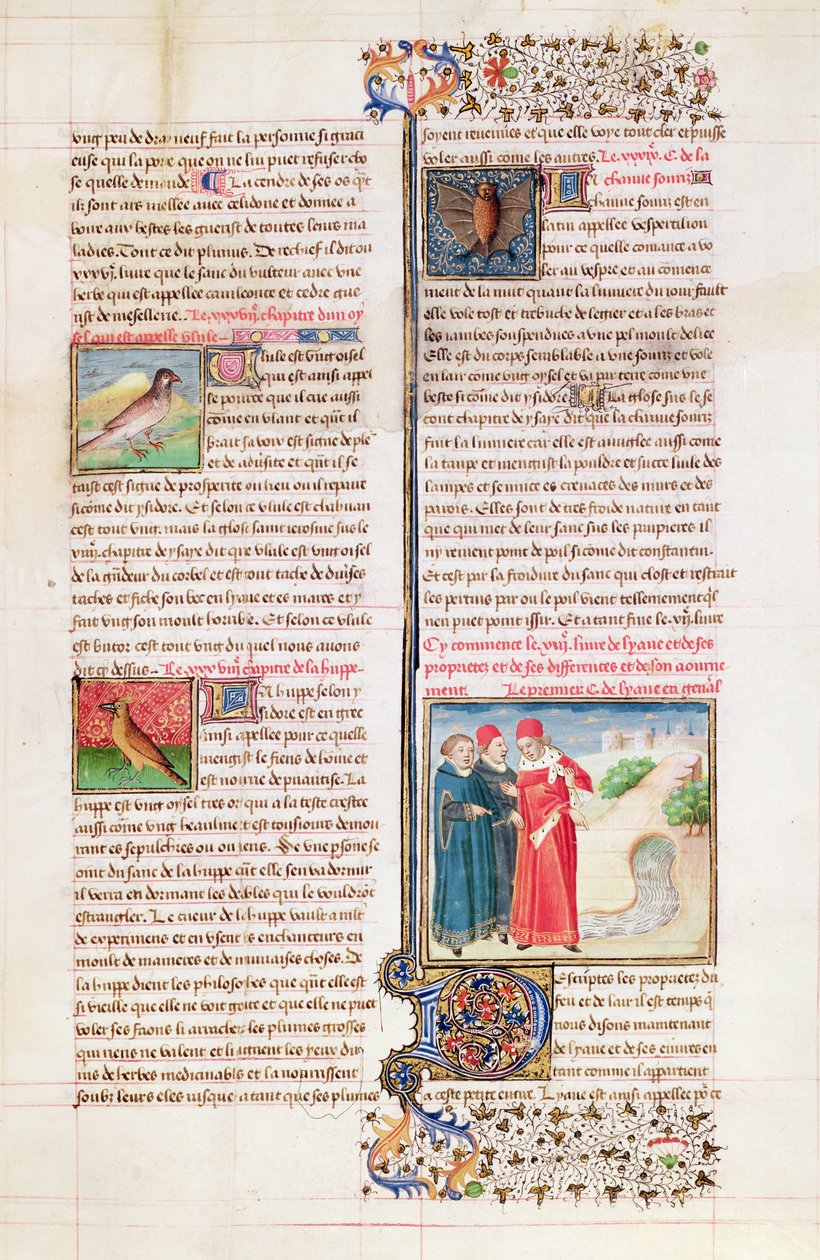 vng peu de drap neuf fait la personne si graci
euse qui la porte que on ne lui puet refuser cho
se quelle demande La cendre de ses os qͥt
ilz sont ars mellee auec celidone et donnee a
boire aux bestes les guerist de toutes leurs ma
ladies. Tout ce dit plinius. De rechief il dit ou
xxxvj. liure que le sanc du vulteur auec vne
herbe qui est appellee cameleonce et cedre gue
rist de mesellerie. Le xxxviij. chapitre dun oy
sel qui est appelle vlule
Vlule est vng oisel
qui est ainsi appel
le pource que il crie aussi
come en vlant et qͣnt il
brait sa voix est signe de ple
et de aduersite et qͣnt il se
taist cest signe de prosperite ou lieu ou il repaire
sicōme dit ysidore. Et selon ce vlule est chahuan
cest tout vng. mais la glose saint ierosme sus le
chapitre de ysaye dit que vlule est vng oisel
de la gūdeur du corbel et est tout tache de diuses
taches et fiche son bec en lyaue et es mares et y
fait vng son moult horrible. Et selon ce vlule
est butor cest tout vng du quel nous auons
dit cy dessus. Le xxxviij chapitre de la huppe
La huppe selon y
sidore est en grec
ainsi appellee pour ce quelle
mengust le fiens de hōme et
est nourrie de puantise. La
huppe est vng oysel tres ort qui a la teste crestee
aussi cōme vng heaulme et est tousiours demou
rant es sepulchres ou ou fiens. Se vne psōne se
oint du sanc de la huppe qͣnt elle sen va dormir
il verra en dormant les deables qui le vouldrōt
estrangler. Le cueur de la huppe vault a mlt
de experimens et en vsent les enchanteurs en
moult de manieres et de mauuaises choses. De
la huppe dient les philosophes que qͣnt elle est
si vieille que elle ne voit goute et que elle ne puet
voler ses faons li arrachent les plumes grosses
qui riens ne valent et li oingnent les yeux du
ius de herbes medicinables et la nourrissent
soubz leurs eles iusque a tant que ses plumes
soyent reuenues et que elle voye tout cler et puisse
voler aussi come les autres. Le xxxix. C. de la
chauue souriz
La chauue souriz est en
latin appellee vespertilion
pour ce quelle comance a vo
ler au vespre et au comence
ment de la nuit quant la lumiere du iour fault
elle vole tost et trebuche de legier et a les bras et
les iambes souspendues a vne pel moult deliee
Elle est du corps semblable a vne souriz et vole
en lair cōme vng oysel et va par terre come vne
beste si cōme dit ysidore La glose sus le se
cont chapitre de ysaye dit que la chauue souriz
fuit la lumiere car elle est auuglee aussi come
la taupe et mengust la pouldre et succe luile des
lampes et se muce es creuaces des murs et des
parois. Elles sont de tres froide nature en tant
que qui met de leur sanc sus les paupieres il
ny reuient point de poil si cōme dit constantin.
Et cest par la froidure du sanc qui clost et restraint
les pertuis par ou le poil vient tellement ql
nen puet point issir. Et a tant fine le .xij. liure
Cy commence le .xiij. liure de lyaue et de ses
proprietez et de ses differences et de son aourne
ment. Le premier. C. de lyaue en genͣal
Descriptes les proprietez du
feu et de lair il est temps q̄
nous disons maintenant
de lyaue et de ses euures en
tant comme il appartient
a ceste petite euure. Lyaue est ainsi appellee pͦr ce